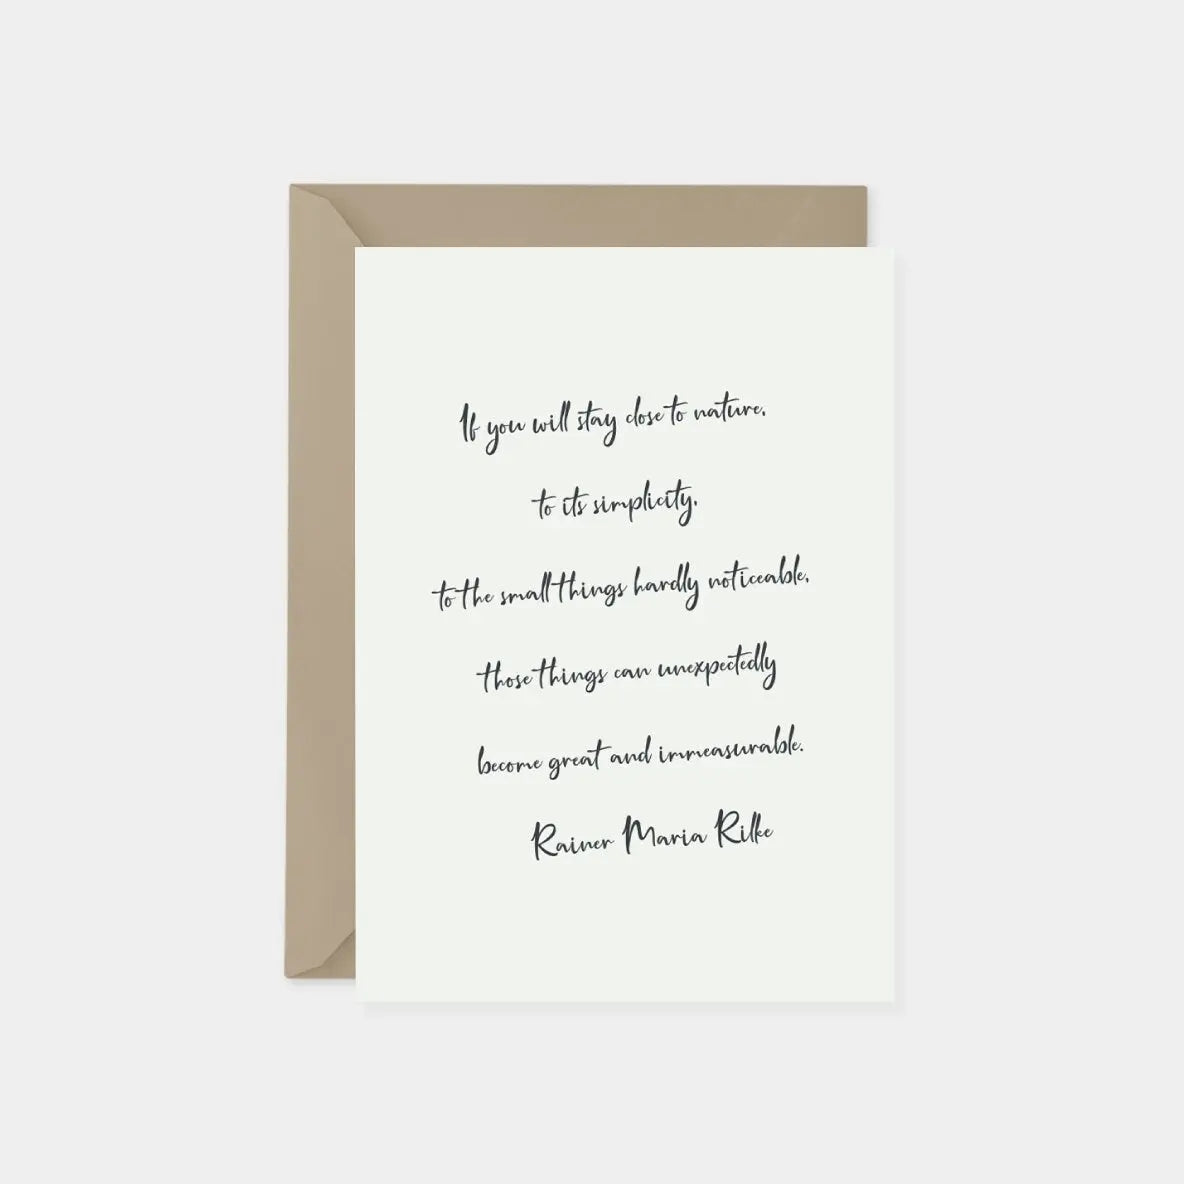 If you will stay close to nature,
to its simplicity,
to the small things hardly noticeable,
those things can unexpectedly
become great and immeasurable.
Rainer Maria Rilke